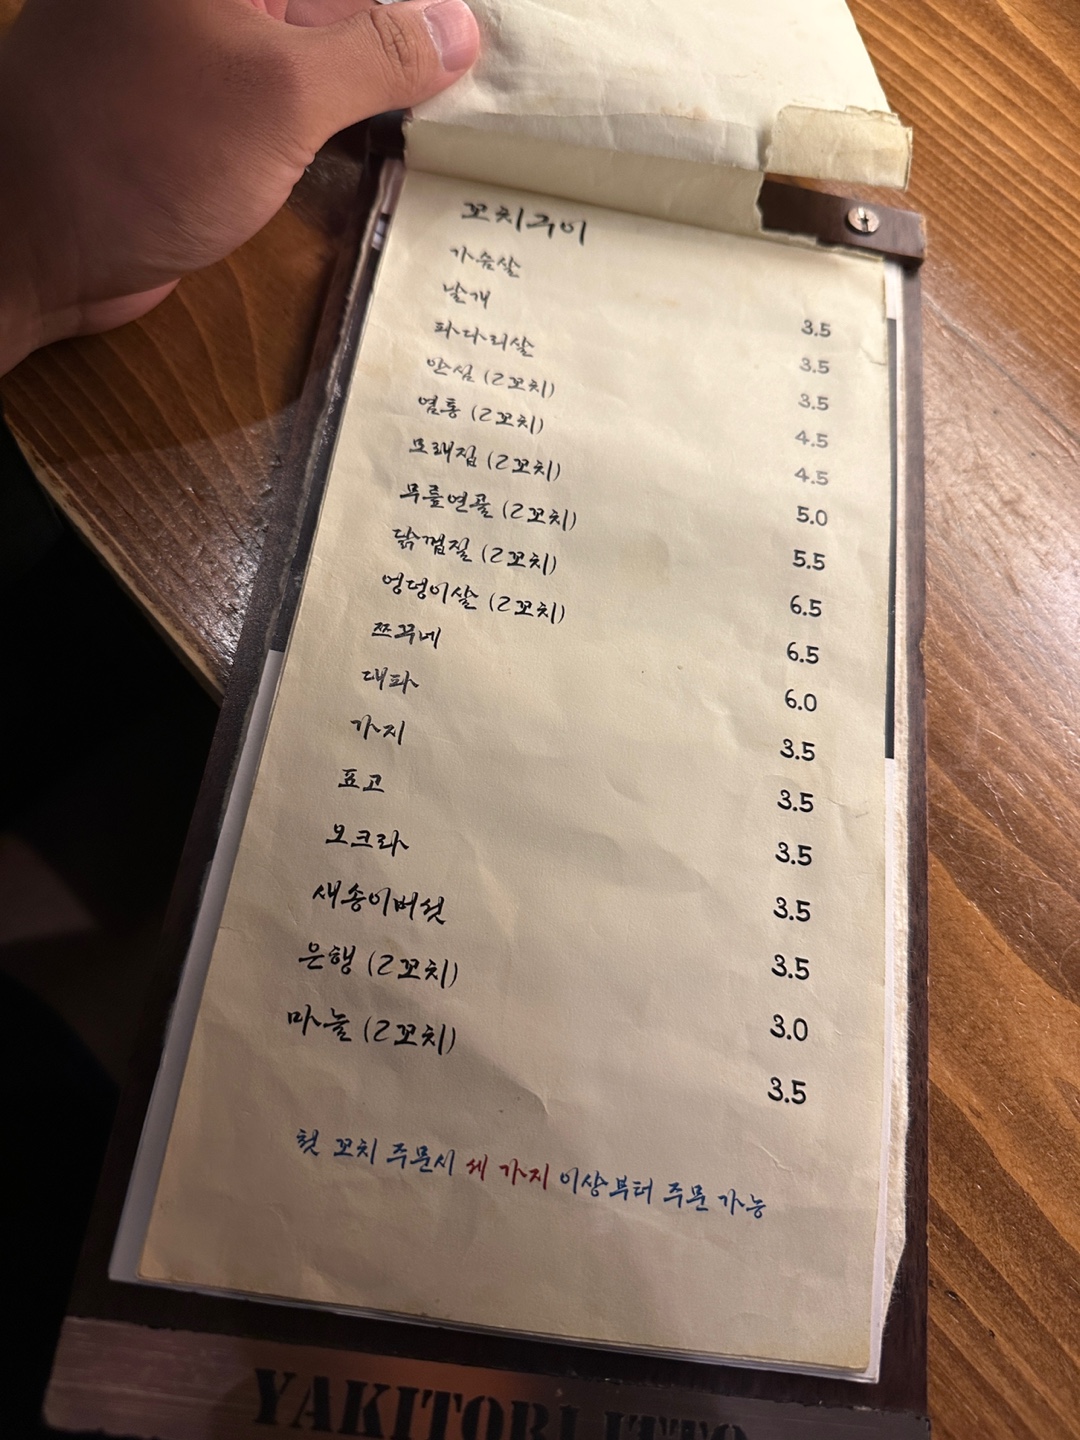 꼬치구이
가슴살 3.5
날개 3.5
파다리살 3.5
안심 (2꼬치) 4.5
염통 (2꼬치) 4.5
모래집 (2꼬치) 5.0
무릎연골 (2꼬치) 5.5
닭껍질 (2꼬치) 6.5
엉덩이살 (2꼬치) 6.5
쯔꾸네 6.0
대파 3.5
가지 3.5
표고 3.5
오크라 3.5
새송이버섯 3.5
은행 (2꼬치) 3.0
마늘 (2꼬치) 3.5
첫 꼬치 주문시 세 가지 이상부터 주문 가능
YAKITORI ITTO